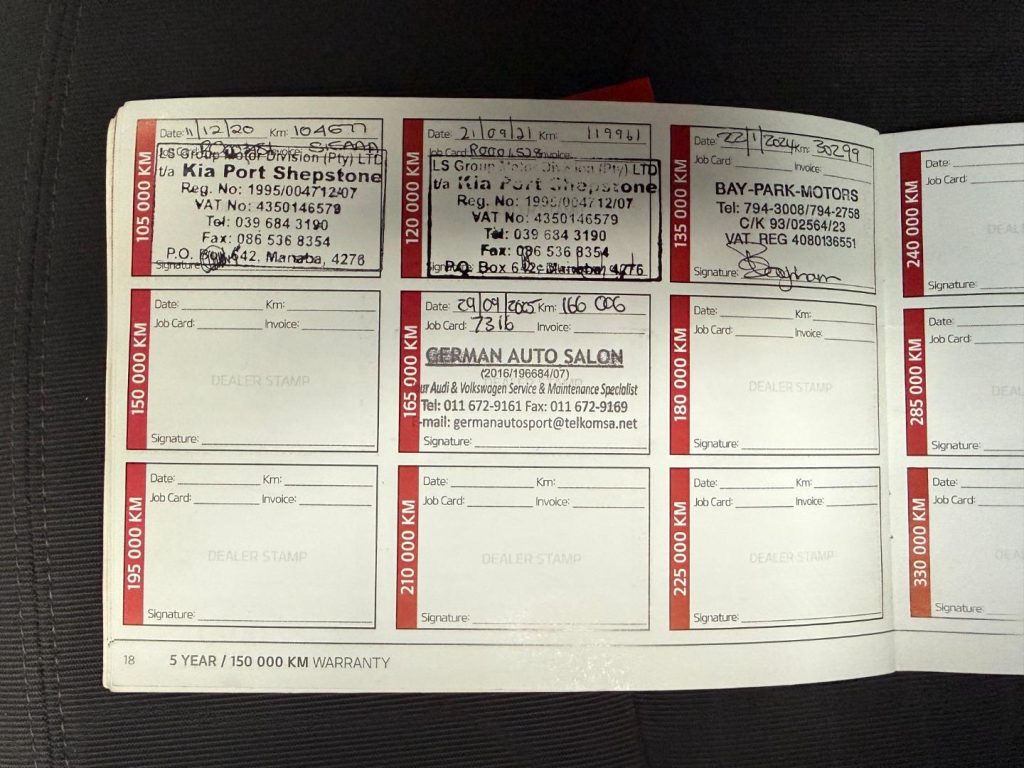 105 000 KM
Date: 11/12/20 Km: 104677
Job Card: Invoice:
LS Group Motor Division (Pty) LTD
t/a Kia Port Shepstone
Reg. No: 1995/004712/07
VAT No: 4350146579
Tel: 039 684 3190
Fax: 086 536 8354
P.O. Box 642, Manaba, 4276
Signature:
120 000 KM
Date: 21/09/21 Km: 119961
Job Card: Invoice:
LS Group Motor Division (Pty) LTD
t/a Kia Port Shepstone
Reg. No: 1995/004712/07
VAT No: 4350146579
Tel: 039 684 3190
Fax: 086 536 8354
P.O. Box 642, Manaba, 4276
Signature:
135 000 KM
Date: 22/1/2024 Km: 30299
Job Card: Invoice:
BAY-PARK-MOTORS
Tel: 794-3008/794-2758
C/K 93/02564/23
VAT REG 4080136551
Signature:
240 000 KM
Date:
Job Card:
Signature:
150 000 KM
Date: Km:
Job Card: Invoice:
DEALER STAMP
Signature:
165 000 KM
Date: 29/09/2025 Km: 166 006
Job Card: 7316 Invoice:
GERMAN AUTO SALON
(2016/196684/07)
Audi & Volkswagen Service & Maintenance Specialist
Tel: 011 672-9161 Fax: 011 672-9169
E-mail: germanautosport@telkomsa.net
Signature:
180 000 KM
Date: Km:
Job Card: Invoice:
DEALER STAMP
Signature:
285 000 KM
Date:
Job Card:
Signature:
195 000 KM
Date: Km:
Job Card: Invoice:
DEALER STAMP
Signature:
210 000 KM
Date: Km:
Job Card: Invoice:
DEALER STAMP
Signature:
225 000 KM
Date: Km:
Job Card: Invoice:
DEALER STAMP
Signature:
330 000 KM
Date:
Job Card:
Signature:
18 5 YEAR / 150 000 KM WARRANTY